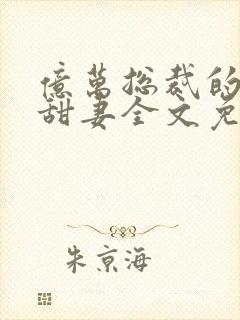 億萬総裁的
甜妻全文免
朱京海